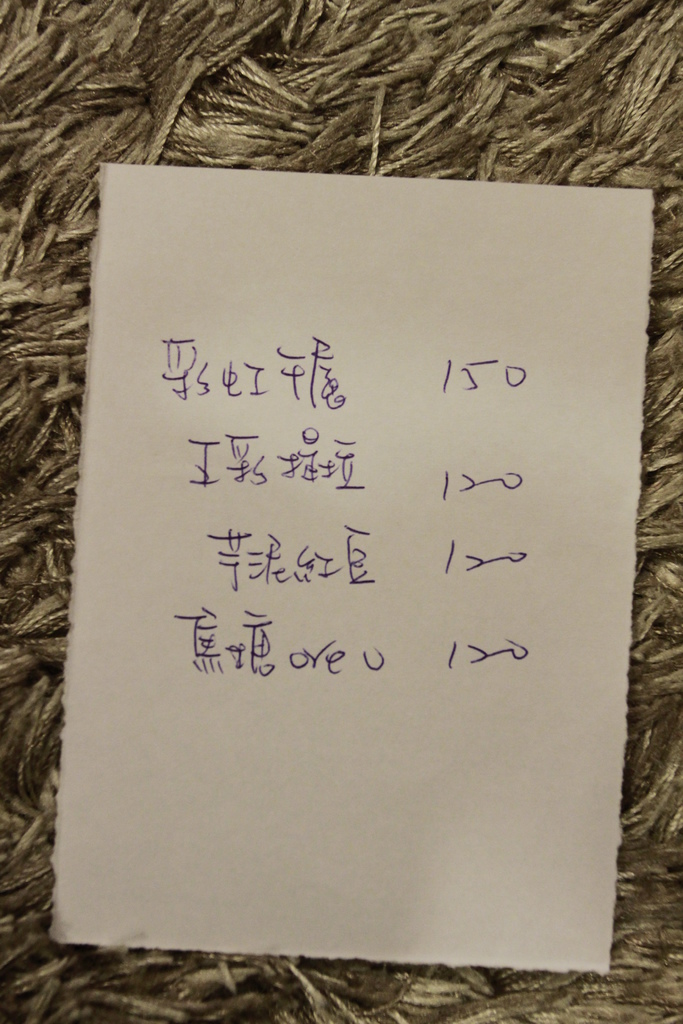 彩虹千層 150
五彩拉 120
芋泥紅豆 120
焦糖 oreo 120